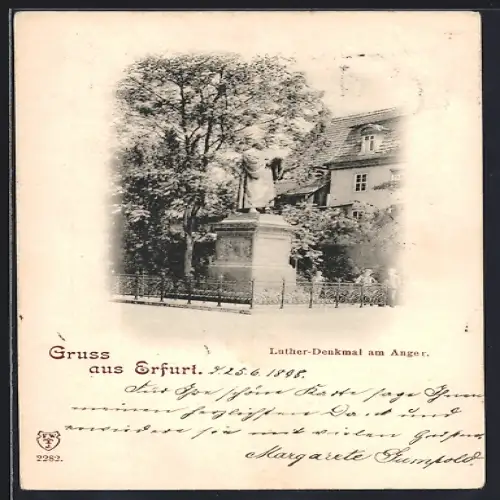 Luther-Denkmal am Anger.
Gruss
aus Erfurt. d. 25.6.1898.
Für Ihre schöne Karte sage Ihnen
meinen herzlichsten Dank und
erwidere sie mit vielen Grüssen
Margarete Gumpold.
2282.